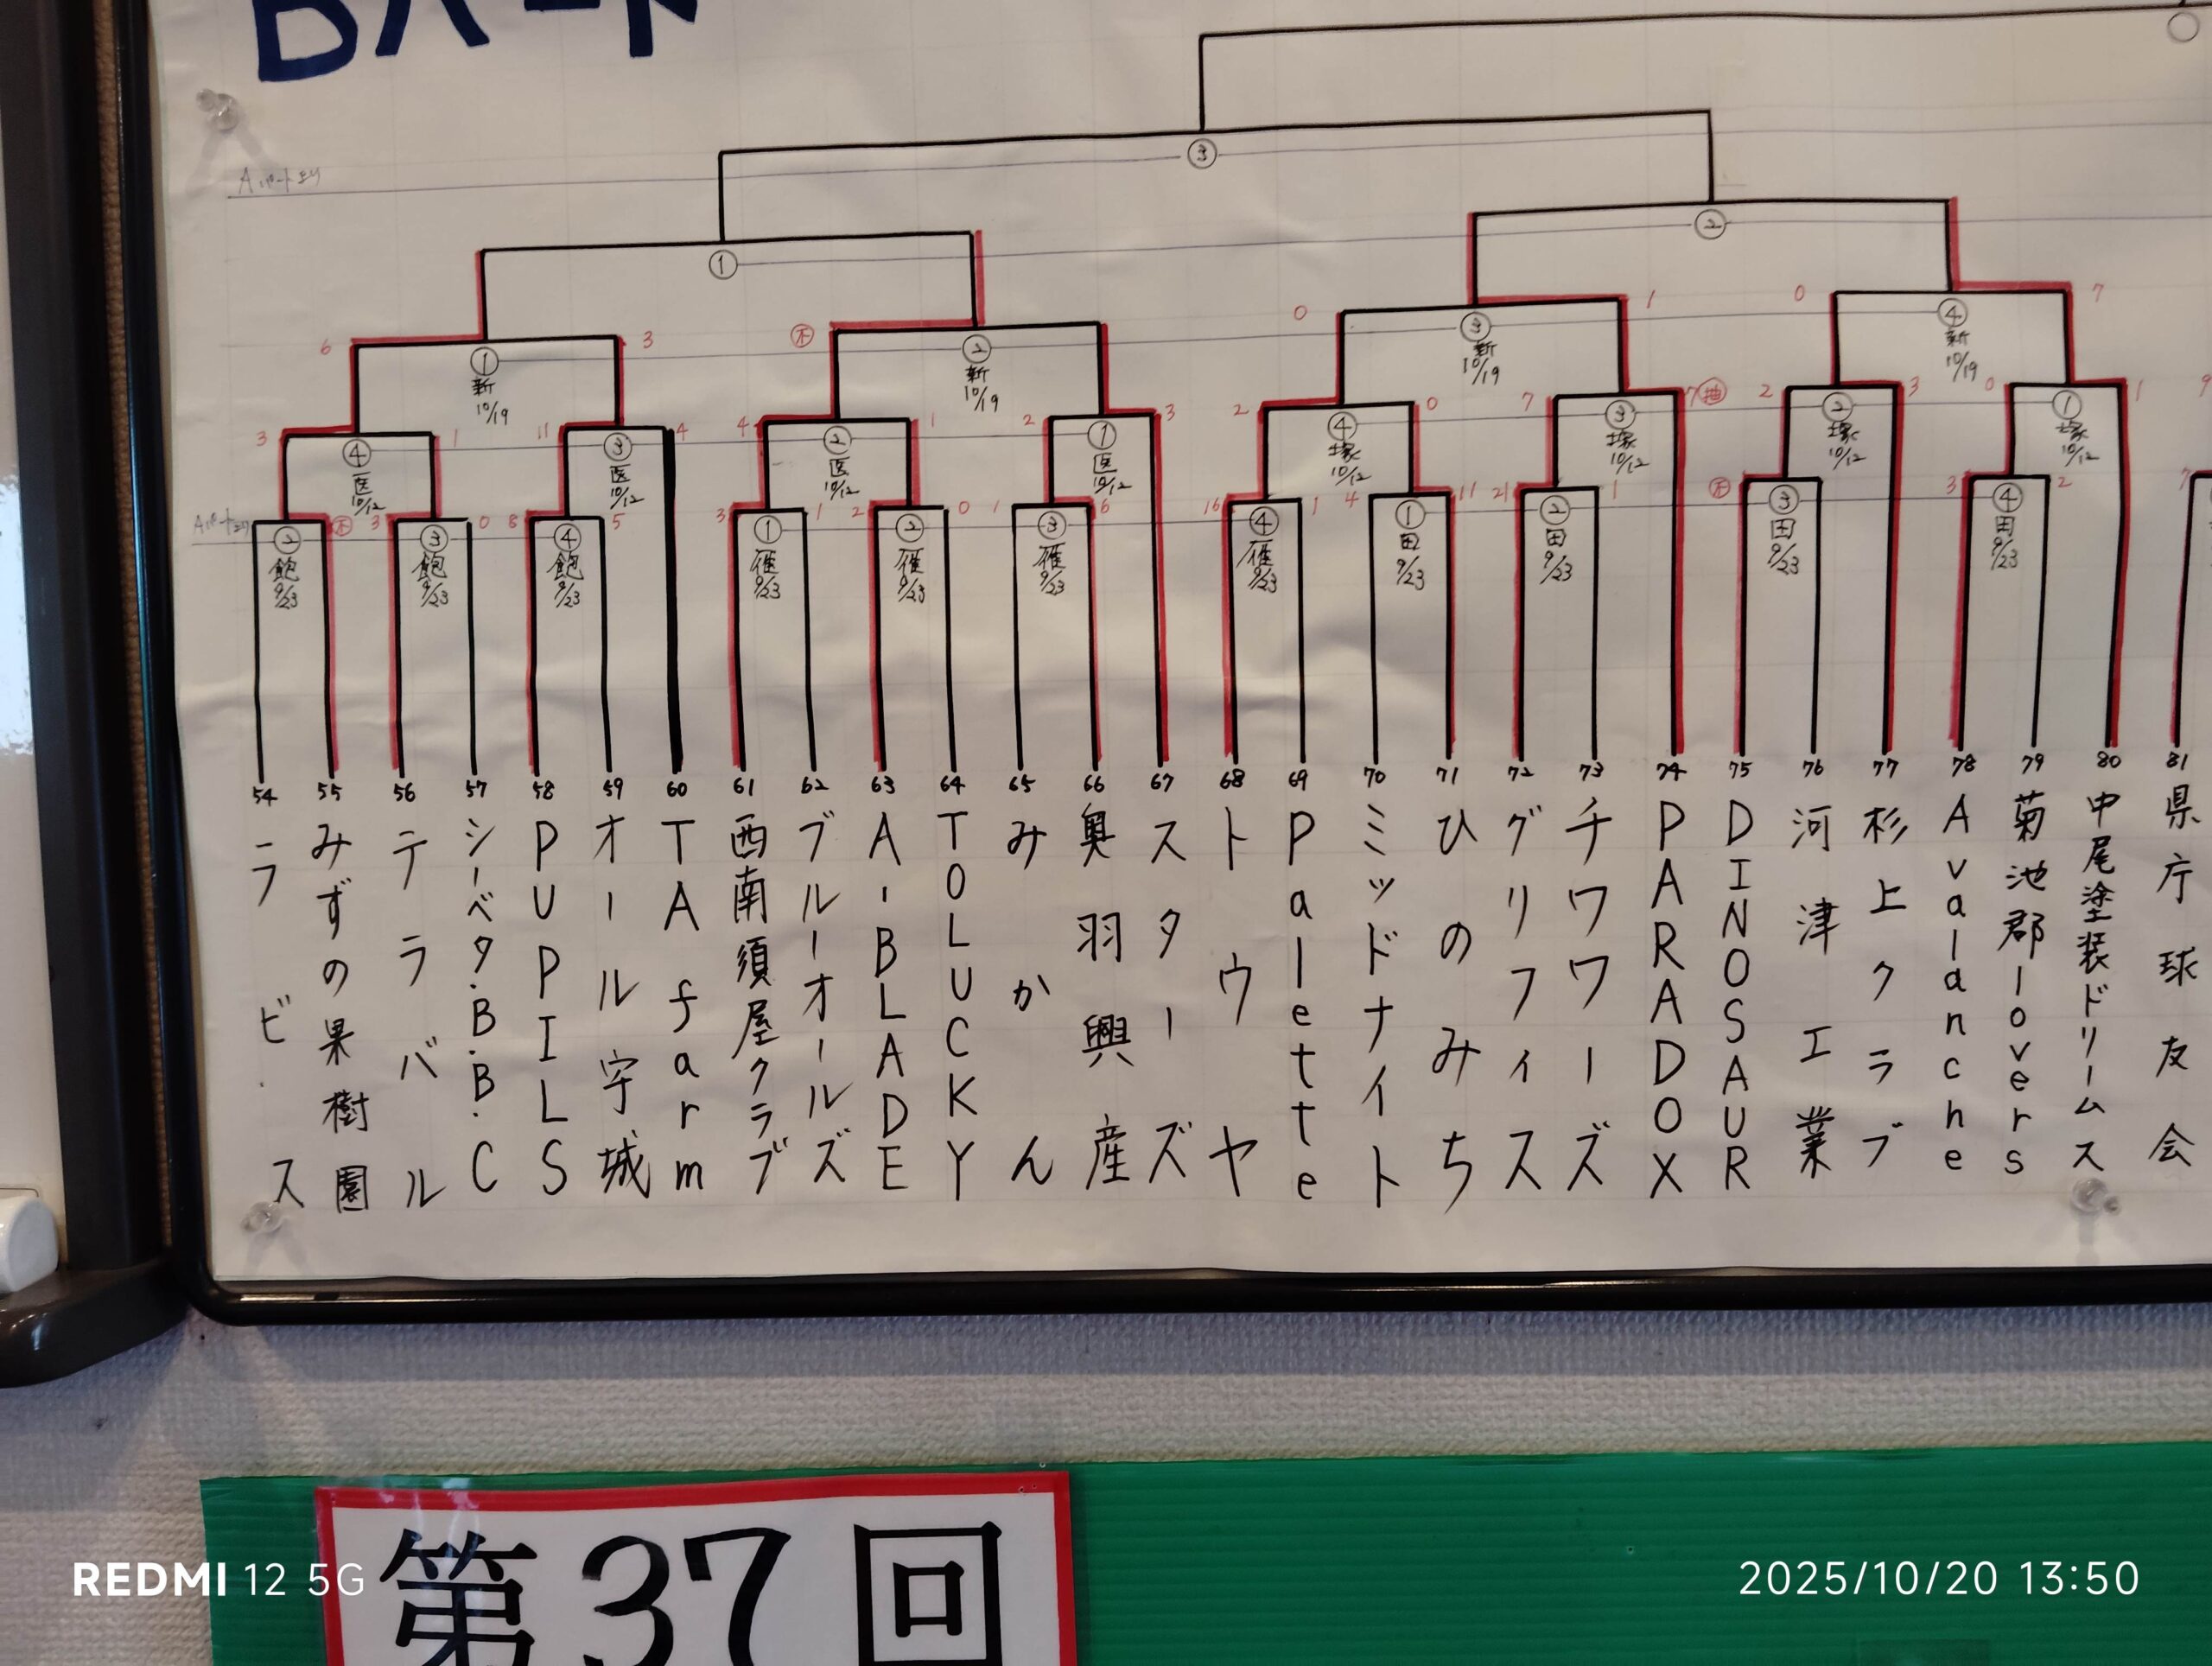 Bパート
③
Aパートより
②
①
0 1 0 7
6 3 ㋫ ③ ④
① ② 新 新
新 新 10/19 10/19
10/19 10/19
2 0 7 7 ㊙ 2 3 0 1
3 1 11 4 4 1 2 3 ④ ③ ② ①
④ ③ ② ① 塚 塚 塚 塚
医 医 医 医 10/12 10/12 10/12 10/12
10/12 10/12 10/12 10/12
Aパートより 3 0 8 5 3 1 2 0 1 6 16 1 4 11 21 1 3 2
② ③ ④ ① ② ③ ④ ① ② ③ ④
飽 飽 飽 雁 雁 雁 雁 田 田 田 田
9/23 9/23 9/23 9/23 9/23 9/23 9/23 9/23 9/23 9/23 9/23
54 ラビス
55 みずの果樹園
56 テラバル
57 シーベタ.B.B.C
58 PUPILS
59 オール宇城
60 TA farm
61 西南須屋クラブ
62 ブルーオールズ
63 A-BLADE
64 TOLUCKY
65 みかん
66 奥羽興産
67 スターズ
68 トウヤ
69 Palette
70 ミッドナイト
71 ひのみち
72 グリフィス
73 チワワーズ
74 PARADOX
75 DINOSAUR
76 河津工業
77 杉上クラブ
78 Avalanche
79 菊池郡lovers
80 中尾塗装ドリームス
81 県庁球友会
第37回
REDMI 12 5G
2025/10/20 13:50